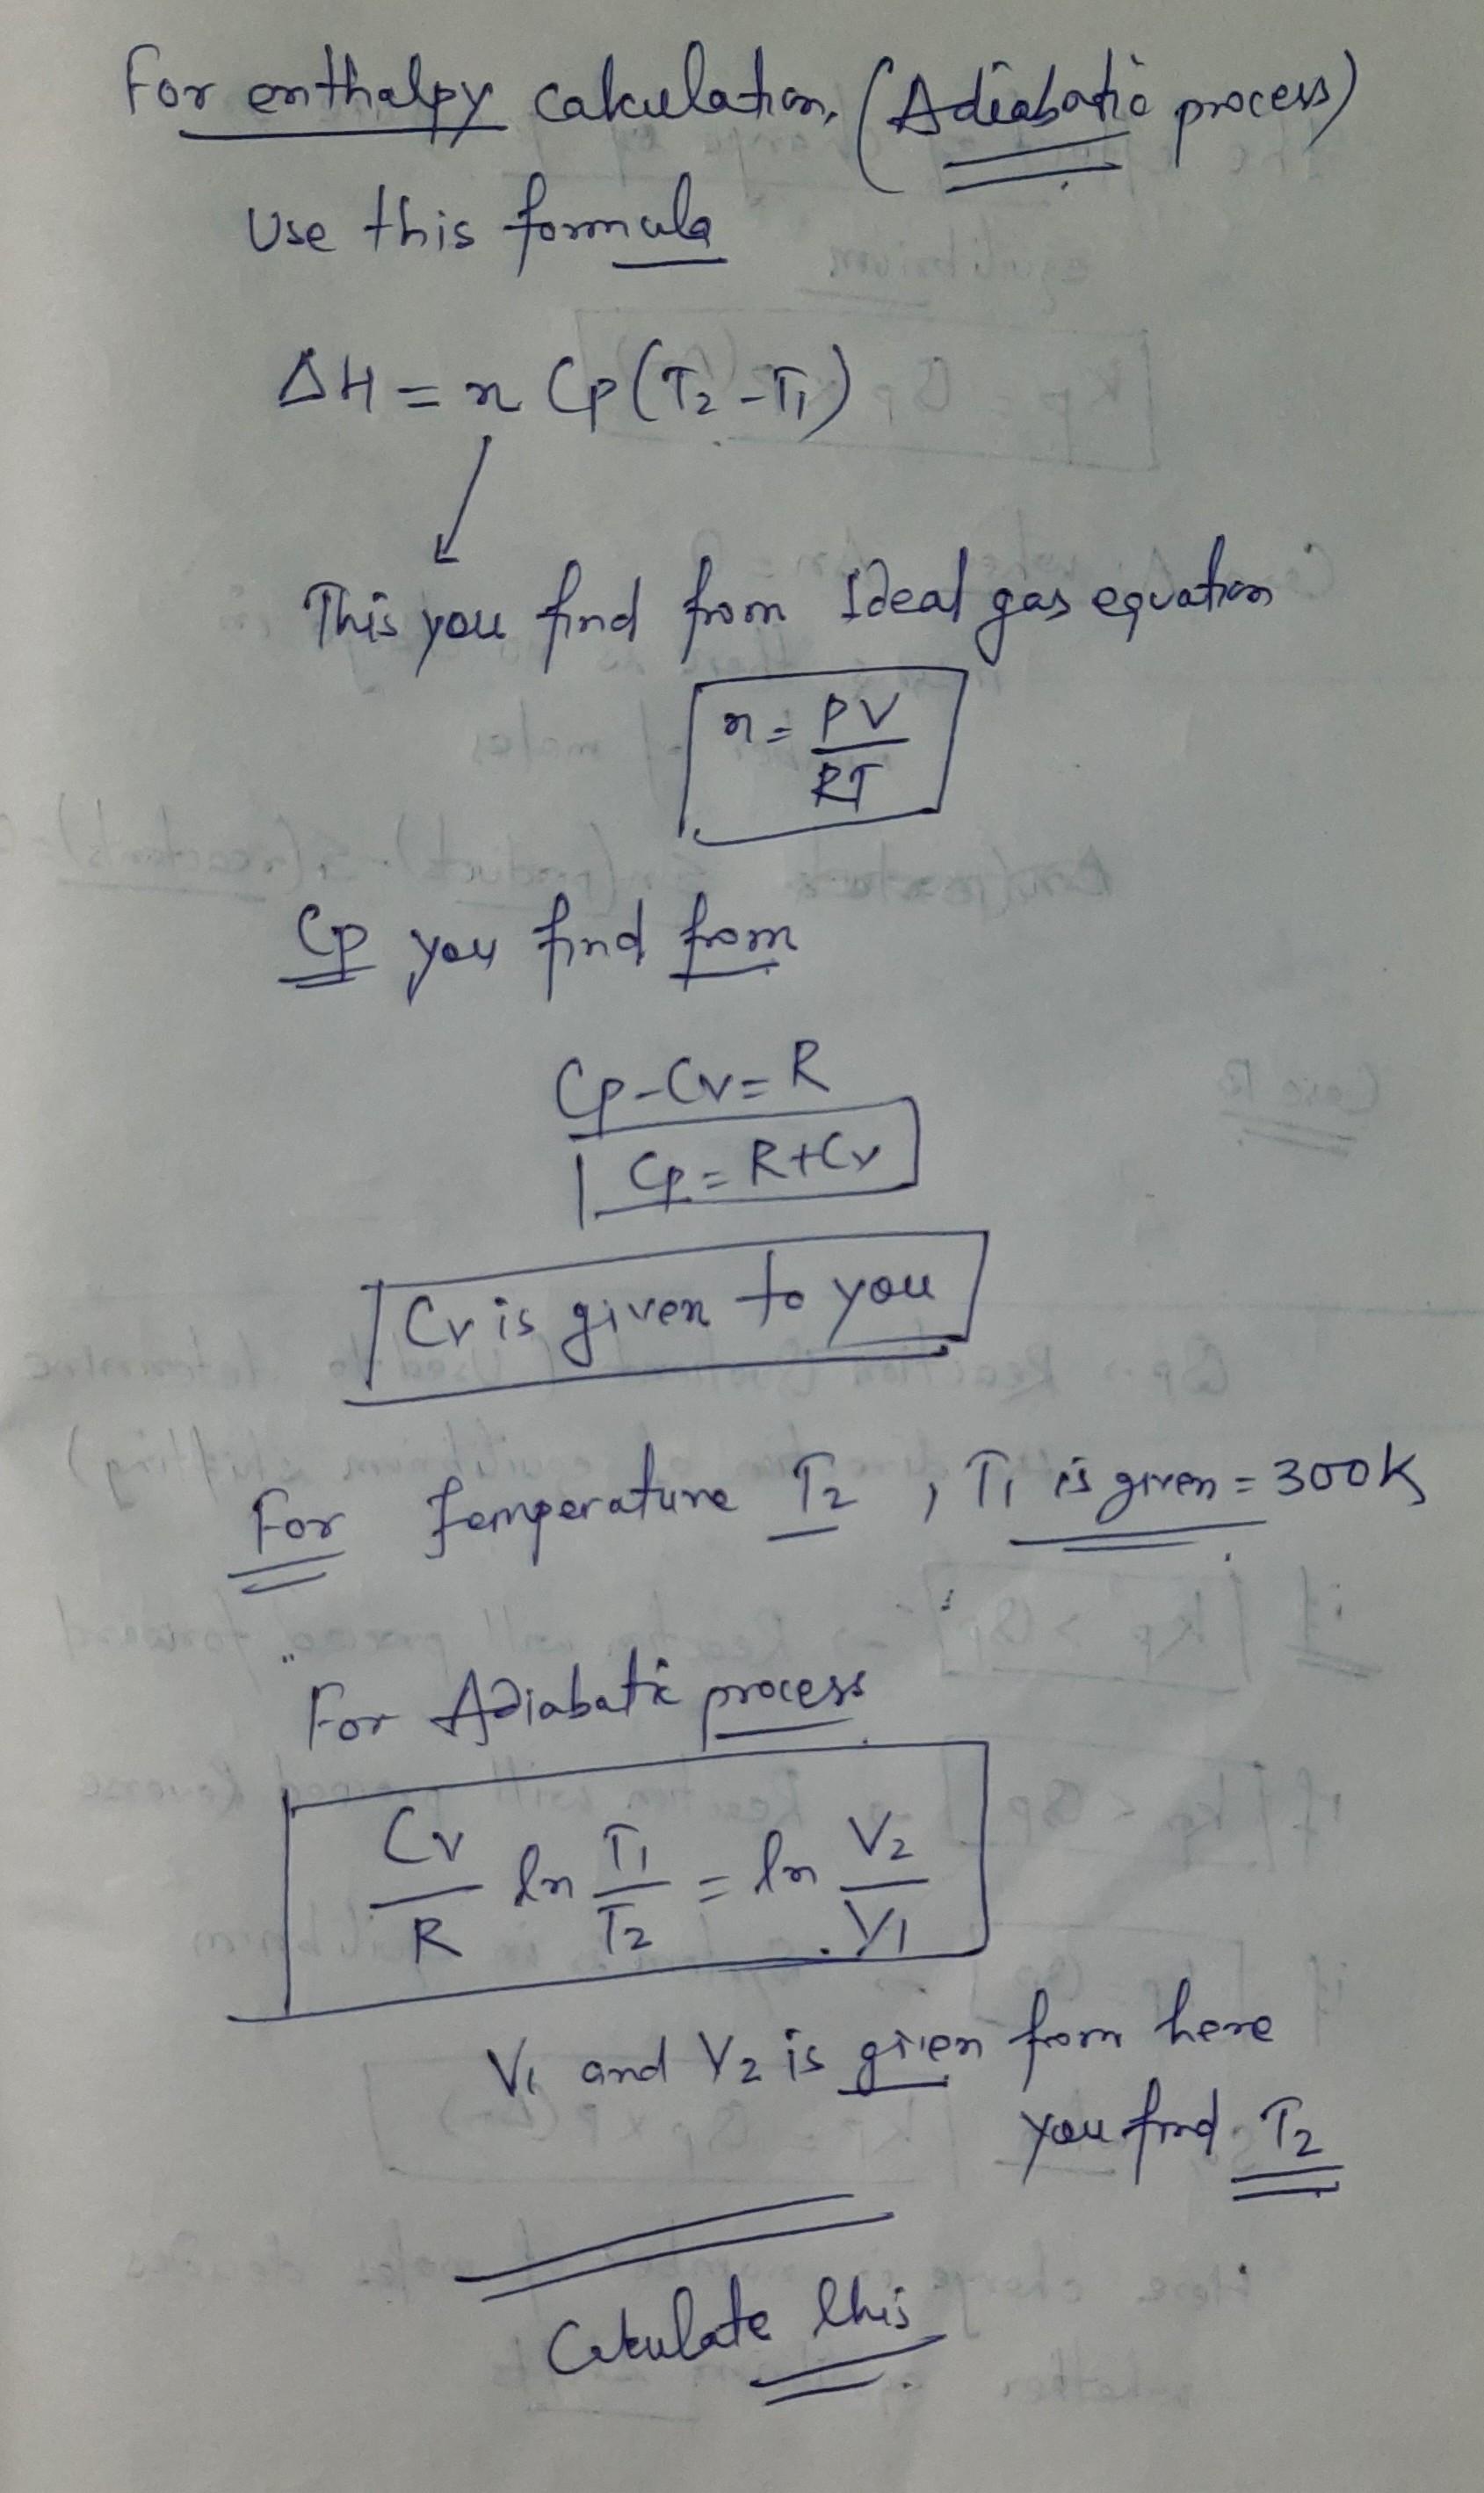 For enthalpy calculation, (Adiabatic process)
Use this formula
ΔH = n Cp (T₂ - T₁)
This you find from Ideal gas equation
n = PV / RT
Cp you find from
Cp - Cv = R
Cp = R + Cv
Cv is given to you
For Temperature T₂ , T₁ is given = 300K
For Adiabatic process
Cv/R ln T₁/T₂ = ln V₂/V₁
V₁ and V₂ is given from here
you find T₂
Calculate this